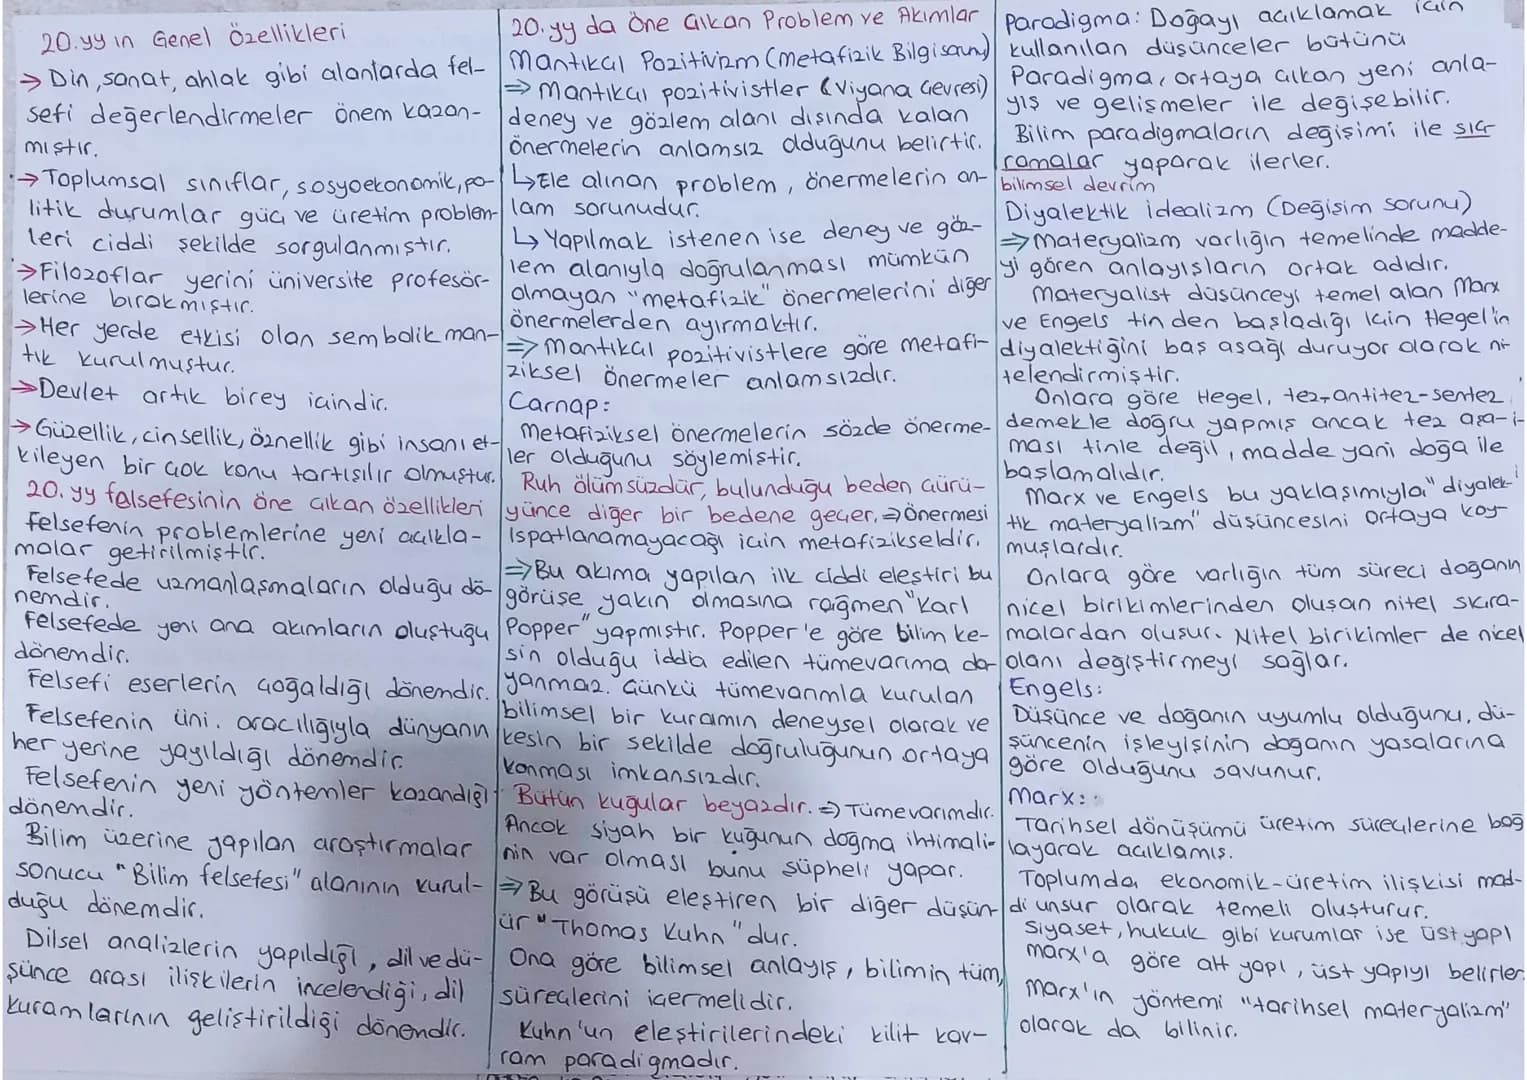 20.yy ın Genel Özellikleri
→ Din, sanat, ahlak gibi alanlarda fel-
sefi değerlendirmeler önem kazan-
mıştır.
→ Toplumsal sınıflar, sosyoekonomik, po-
litik durumlar güç ve üretim problem-
leri ciddi şekilde sorgulanmıştır.
→ Filozoflar yerini üniversite profesör-
lerine bırakmıştır.
→ Her yerde etkisi olan sembolik man-
tık kurulmuştur.
→ Devlet artık birey içindir.
→ Güzellik, cinsellik, öznellik gibi insanı et-
kileyen bir çok konu tartışılır olmuştur.
20. yy felsefesinin öne çıkan özellikleri
Felsefenin problemlerine yeni açıkla-
malar getirilmiştir.
Felsefede uzmanlaşmaların olduğu dö-
nemdir.
Felsefede yeni ana akımların oluştuğu
dönemdir.
Felsefi eserlerin çoğaldığı dönemdir.
Felsefenin üni. aracılığıyla dünyanın
her yerine yayıldığı dönemdir.
Felsefenin yeni yöntemler kazandığı
dönemdir.
Bilim üzerine yapılan araştırmalar
sonucu "Bilim felsefesi" alanının kurul-
duğu dönemdir.
Dilsel analizlerin yapıldığı, dil ve dü-
şünce arası ilişkilerin incelendiği, dil
kuramlarının geliştirildiği dönemdir.
20.yy da Öne Çıkan Problem ve Akımlar
Mantıkçı Pozitivizm (Metafizik Bilgi sorunu)
⇒ Mantıkçı pozitivistler (Viyana Çevresi)
deney ve gözlem alanı dışında kalan
önermelerin anlamsız olduğunu belirtir.
↳ Ele alınan problem, önermelerin an-
lam sorunudur.
↳ Yapılmak istenen ise deney ve göz-
lem alanıyla doğrulanması mümkün
olmayan "metafizik" önermelerini diğer
önermelerden ayırmaktır.
⇒ Mantıkçı pozitivistlere göre metafi-
ziksel önermeler anlamsızdır.
Carnap:
Metafiziksel önermelerin sözde önerme-
ler olduğunu söylemiştir.
Ruh ölümsüzdür, bulunduğu beden çürü-
yünce diğer bir bedene geçer. ⇒ Önermesi
ispatlanamayacağı için metafizikseldir.
⇒ Bu akıma yapılan ilk ciddi eleştiri bu
görüşe yakın olmasına rağmen "Karl
Popper" yapmıştır. Popper'e göre bilim ke-
sin olduğu iddia edilen tümevarıma da-
yanmaz. Çünkü tümevarımla kurulan
bilimsel bir kuramın deneysel olarak ve
kesin bir şekilde doğruluğunun ortaya
konması imkansızdır.
Bütün kuğular beyazdır. ⇒ Tümevarımdır.
Ancak siyah bir kuğunun doğma ihtimali-
nin var olması bunu şüpheli yapar.
⇒ Bu görüşü eleştiren bir diğer düşün-
ür "Thomas Kuhn" dur.
Ona göre bilimsel anlayış, bilimin tüm
süreçlerini içermelidir.
Kuhn'un eleştirilerindeki kilit kav-
ram paradigmadır.
Paradigma: Doğayı açıklamak için
kullanılan düşünceler bütünü
Paradigma, ortaya çıkan yeni anla-
yış ve gelişmeler ile değişebilir.
Bilim paradigmaların değişimi ile sıç-
ramalar yaparak ilerler.
bilimsel devrim
Diyalektik idealizm (Değişim sorunu)
⇒ Materyalizm varlığın temelinde madde-
yi gören anlayışların ortak adıdır.
Materyalist düşünceyi temel alan Marx
ve Engels tin den başladığı için Hegel'in
diyalektiğini baş aşağı duruyor olarak ni-
telendirmiştir.
Onlara göre Hegel, tez-antitez-sentez
demekle doğru yapmış ancak tez aşa-
ması tinle değil, madde yani doğa ile
başlamalıdır.
Marx ve Engels bu yaklaşımıyla "diyalek-
tik materyalizm" düşüncesini ortaya koy-
muşlardır.
Onlara göre varlığın tüm süreci doğanın
nicel birikimlerinden oluşan nitel sıkra-
malardan oluşur. Nitel birikimler de nicel
olanı değiştirmeyi sağlar.
Engels:
Düşünce ve doğanın uyumlu olduğunu, dü-
şüncenin işleyişinin doğanın yasalarına
göre olduğunu savunur.
Marx:
Tarihsel dönüşümü üretim süreçlerine bağ
layarak açıklamış.
Toplumda ekonomik-üretim ilişkisi mad-
di unsur olarak temeli oluşturur.
Siyaset, hukuk gibi kurumlar ise üst yapı
Marx'a göre alt yapı, üst yapıyı belirler.
Marx'ın yöntemi "tarihsel materyalizm"
olarak da bilinir.